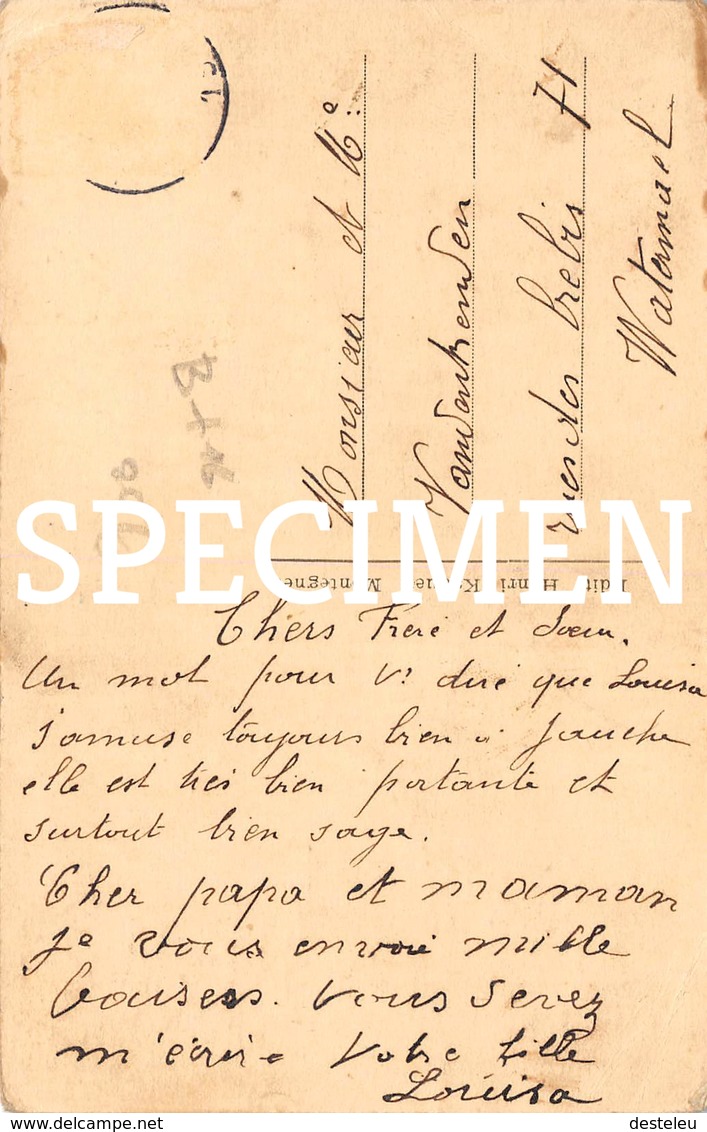 Monsieur et Me
Vandenhemden
rue des brebis 71
Watermael
SPECIMEN
Edit. Henri Montegne
Chers Frere et Soeur.
Un mot pour Vs dire que Louisa
s'amuse toujours bien à Jauche
elle est très bien portante et
surtout bien sage.
Cher papa et maman
je vous envoie mille
baisers. Vous serez
m'écrire Votre fille
Louisa
© delcampe.net
desteleu